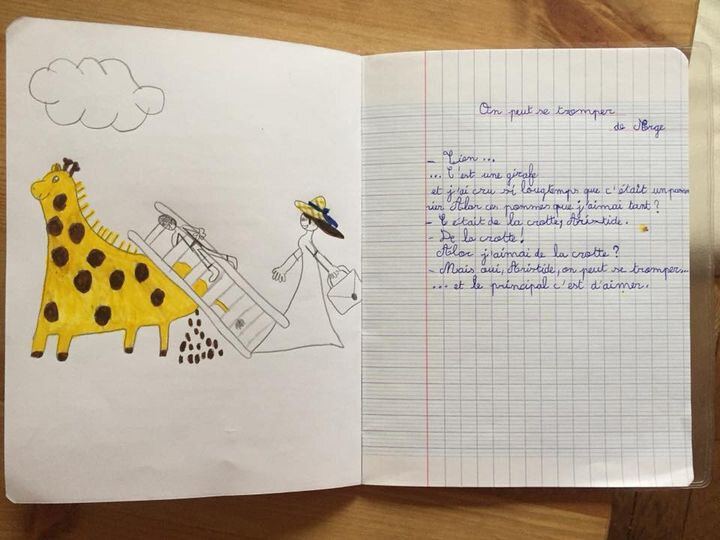 On peut se tromper
de Norge
- Tien ...
... C'est une girafe
et j'ai cru si longtemps que c'était un pomm
ier Alor ces pommes que j'aimai tant ?
- C'était de la crotte, Aristide.
- De la crotte !
Alor j'aimai de la crotte ?
- Mais oui, Aristide, on peut se tromper...
... et le principal c'est d'aimer.